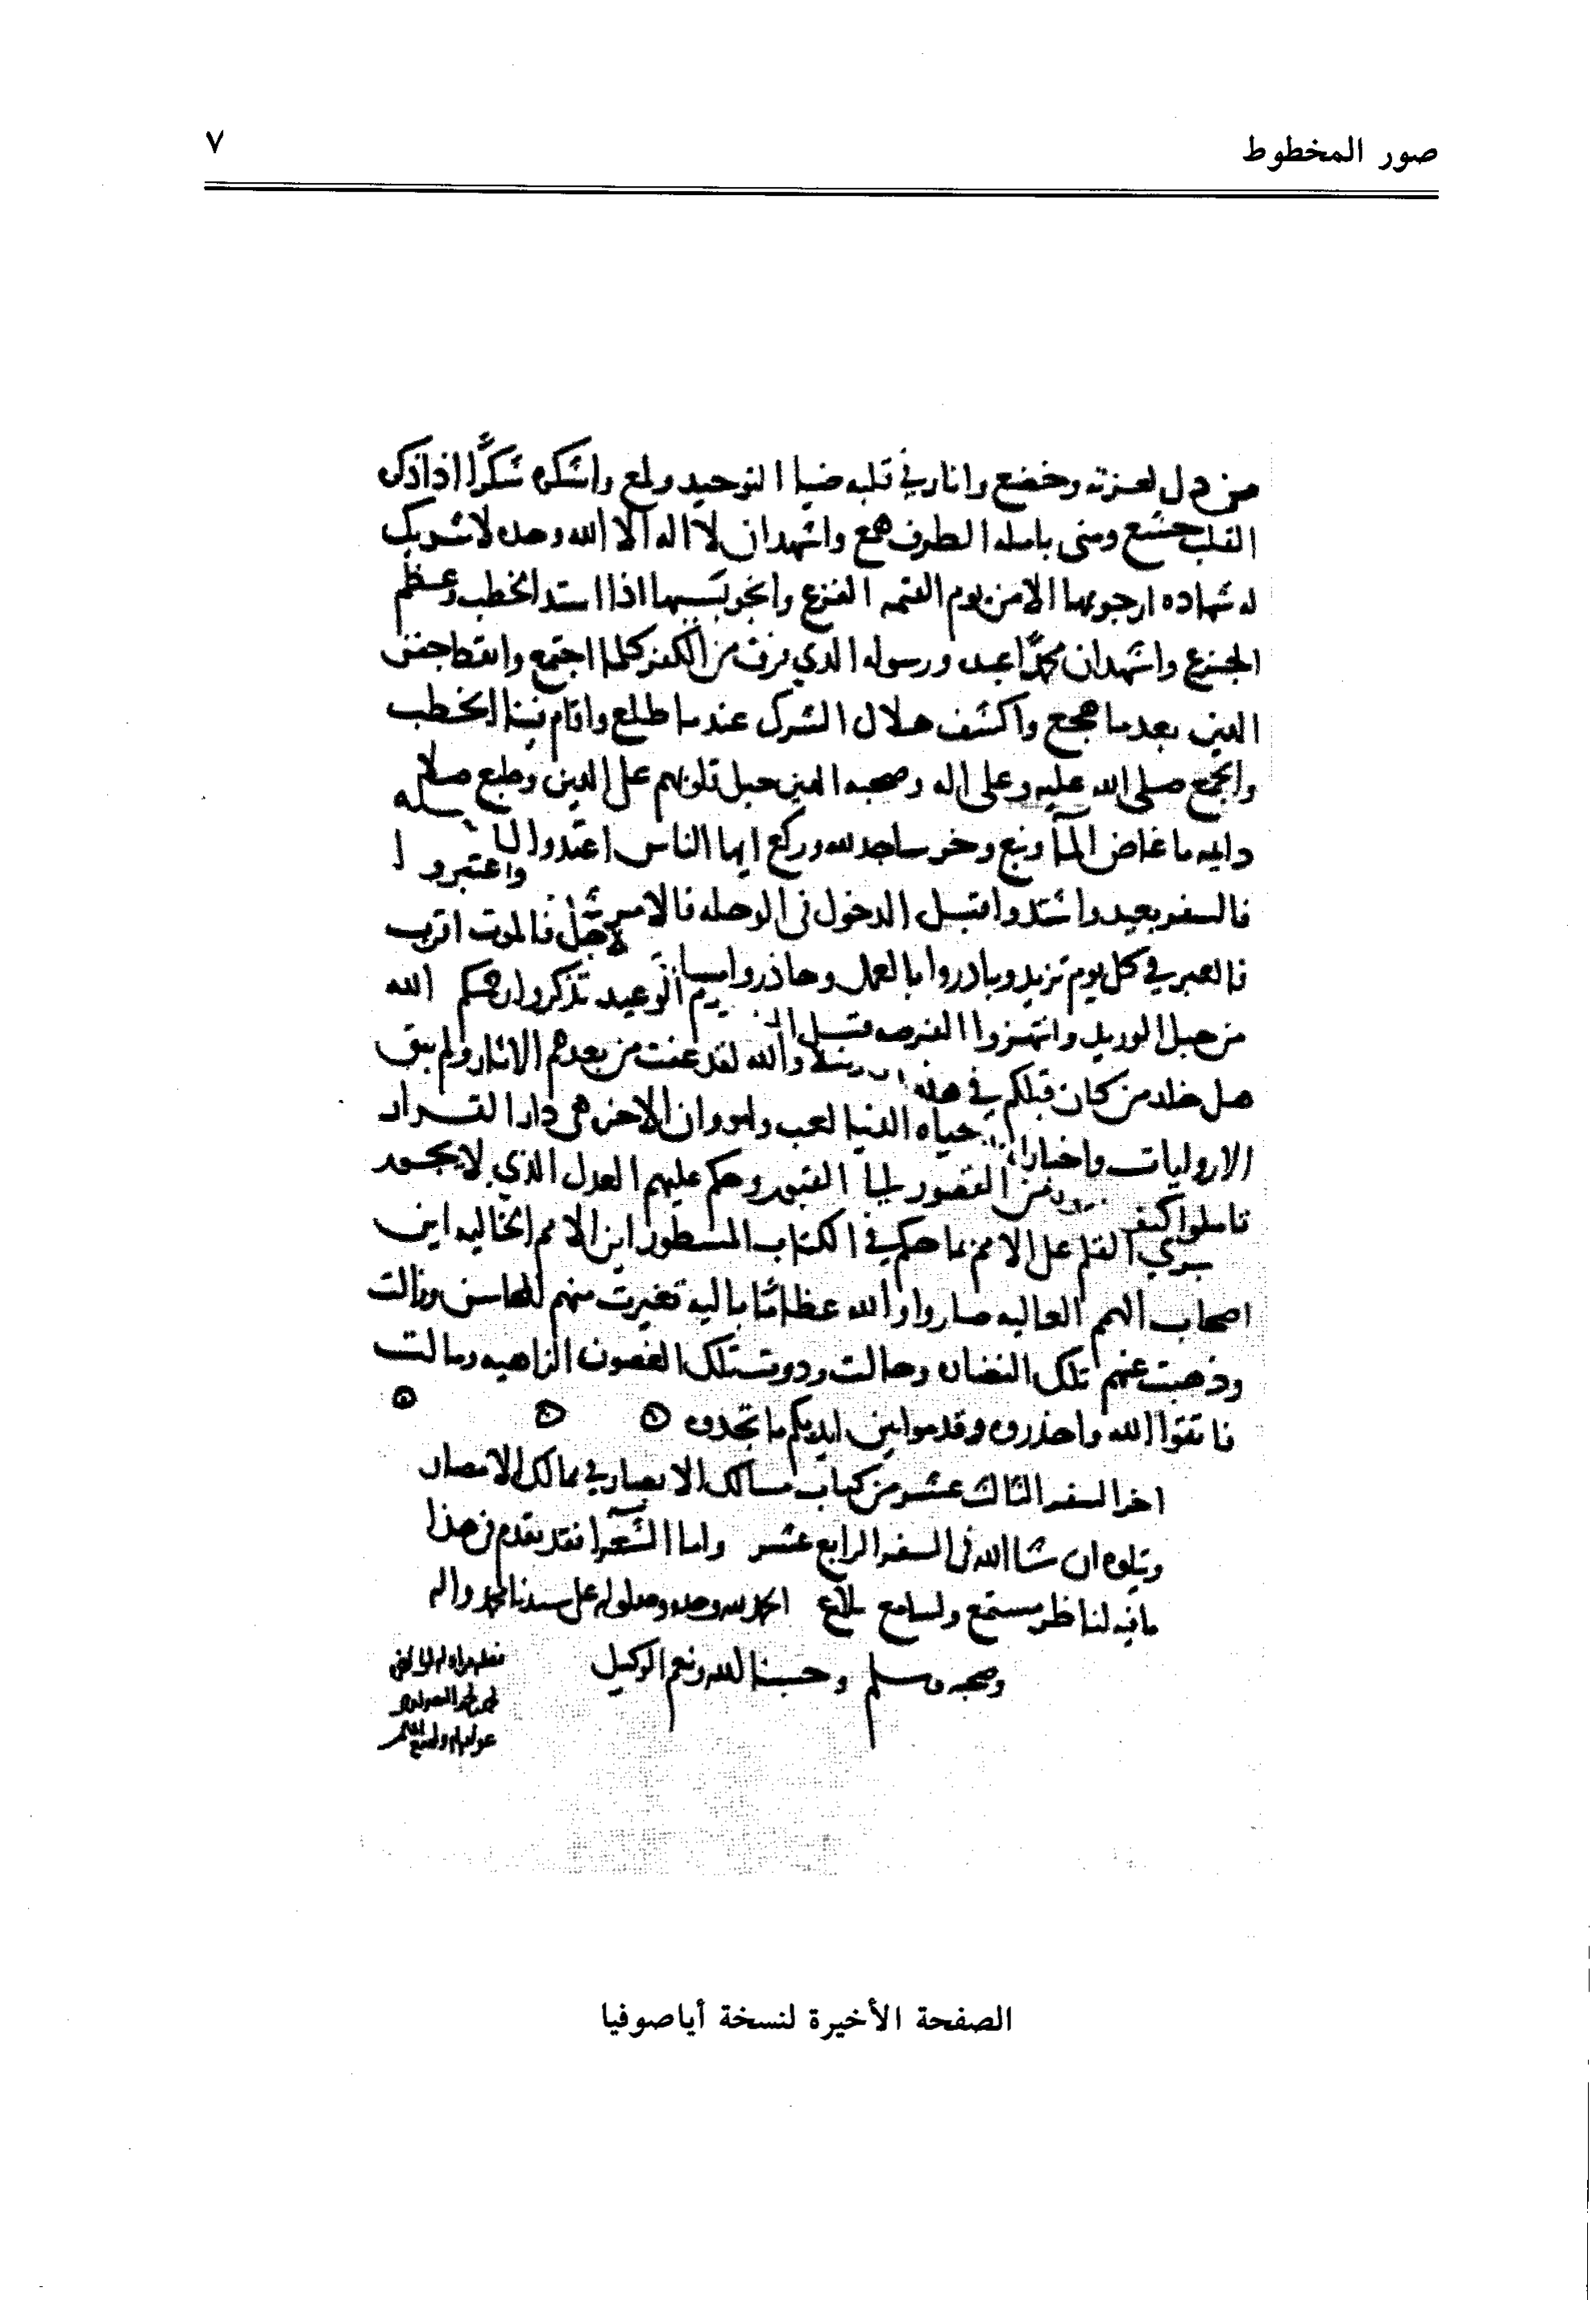 صور المخطوط
٧
من ذل لعزته وخضع وانار في قلبه ضيا التوحيد ولمع واشكره شكرًا اذا ذكر
القلب خشع ومتى باسله الطرف همع واشهد ان لا اله الا الله وحده لا شريك
له شهاده ارجو بها الامن يوم القيمه الفزع وانجو بسببها اذا اشتد الخطب وعظم
الجزع واشهد ان محمدًا عبده ورسوله الذي فرق من الكفر كلما اجتمع وايقظ جفن
الدين بعدما هجع واكشف هلال الشرك عندما طلع واقام فينا الخطب
والجمع صلى الله عليه وعلى اله وصحبه الذين جبل قلوبهم على الدين وطبع صلاه
دايمه ما غاض الما ونبع وخر ساجد لله وركع ايها الناس اعتدوا
واعتبروا
فالسفر بعيد واشتدوا قبل الدخول في الوحله فالامر
فالعبر في كل يوم تزيد وبادروا بالعمل وحاذروا الاجل فالموت اقرب
من حبل الوريد وانتهزوا الفرصه قبل يوم الوعيد تذكروا رحمكم الله
هل خلد من كان قبلكم في هذه والله لقد عفت من بعدهم الاثار ولم يبق
الا روايات واخبار حياه الدنيا لعب ولهو وان الاخره هي دار القرار
تاملوا كيف من القصور الى القبور وحكم عليهم العدل الذي لا يجور
القلم على الامم بما حكم في الكتاب المسطور اين الامم الخاليه اين
اصحاب الهمم العاليه صاروا والله عظامًا باليه تغيرت منهم المحاسن وزالت
وذهبت عنهم تلك النضاره وحالت وذوت تلك الغصون الزاهيه ومالت
فاتقوا الله واحذروه وقدموا بين ايديكم ما تجدوه
اخر السفر الثالث عشر من كتاب مسالك الابصار في ممالك الامصار
ويتلوه ان شا الله في السفر الرابع عشر واما الشعرا فقد تقدم في هذا
ما فيه لناظر مستمتع ولسامع بلاغ الحمد لله وحده وصلواته على سيدنا محمد واله
وصحبه وسلم وحسبنا الله ونعم الوكيل
الصفحة الأخيرة لنسخة أياصوفيا